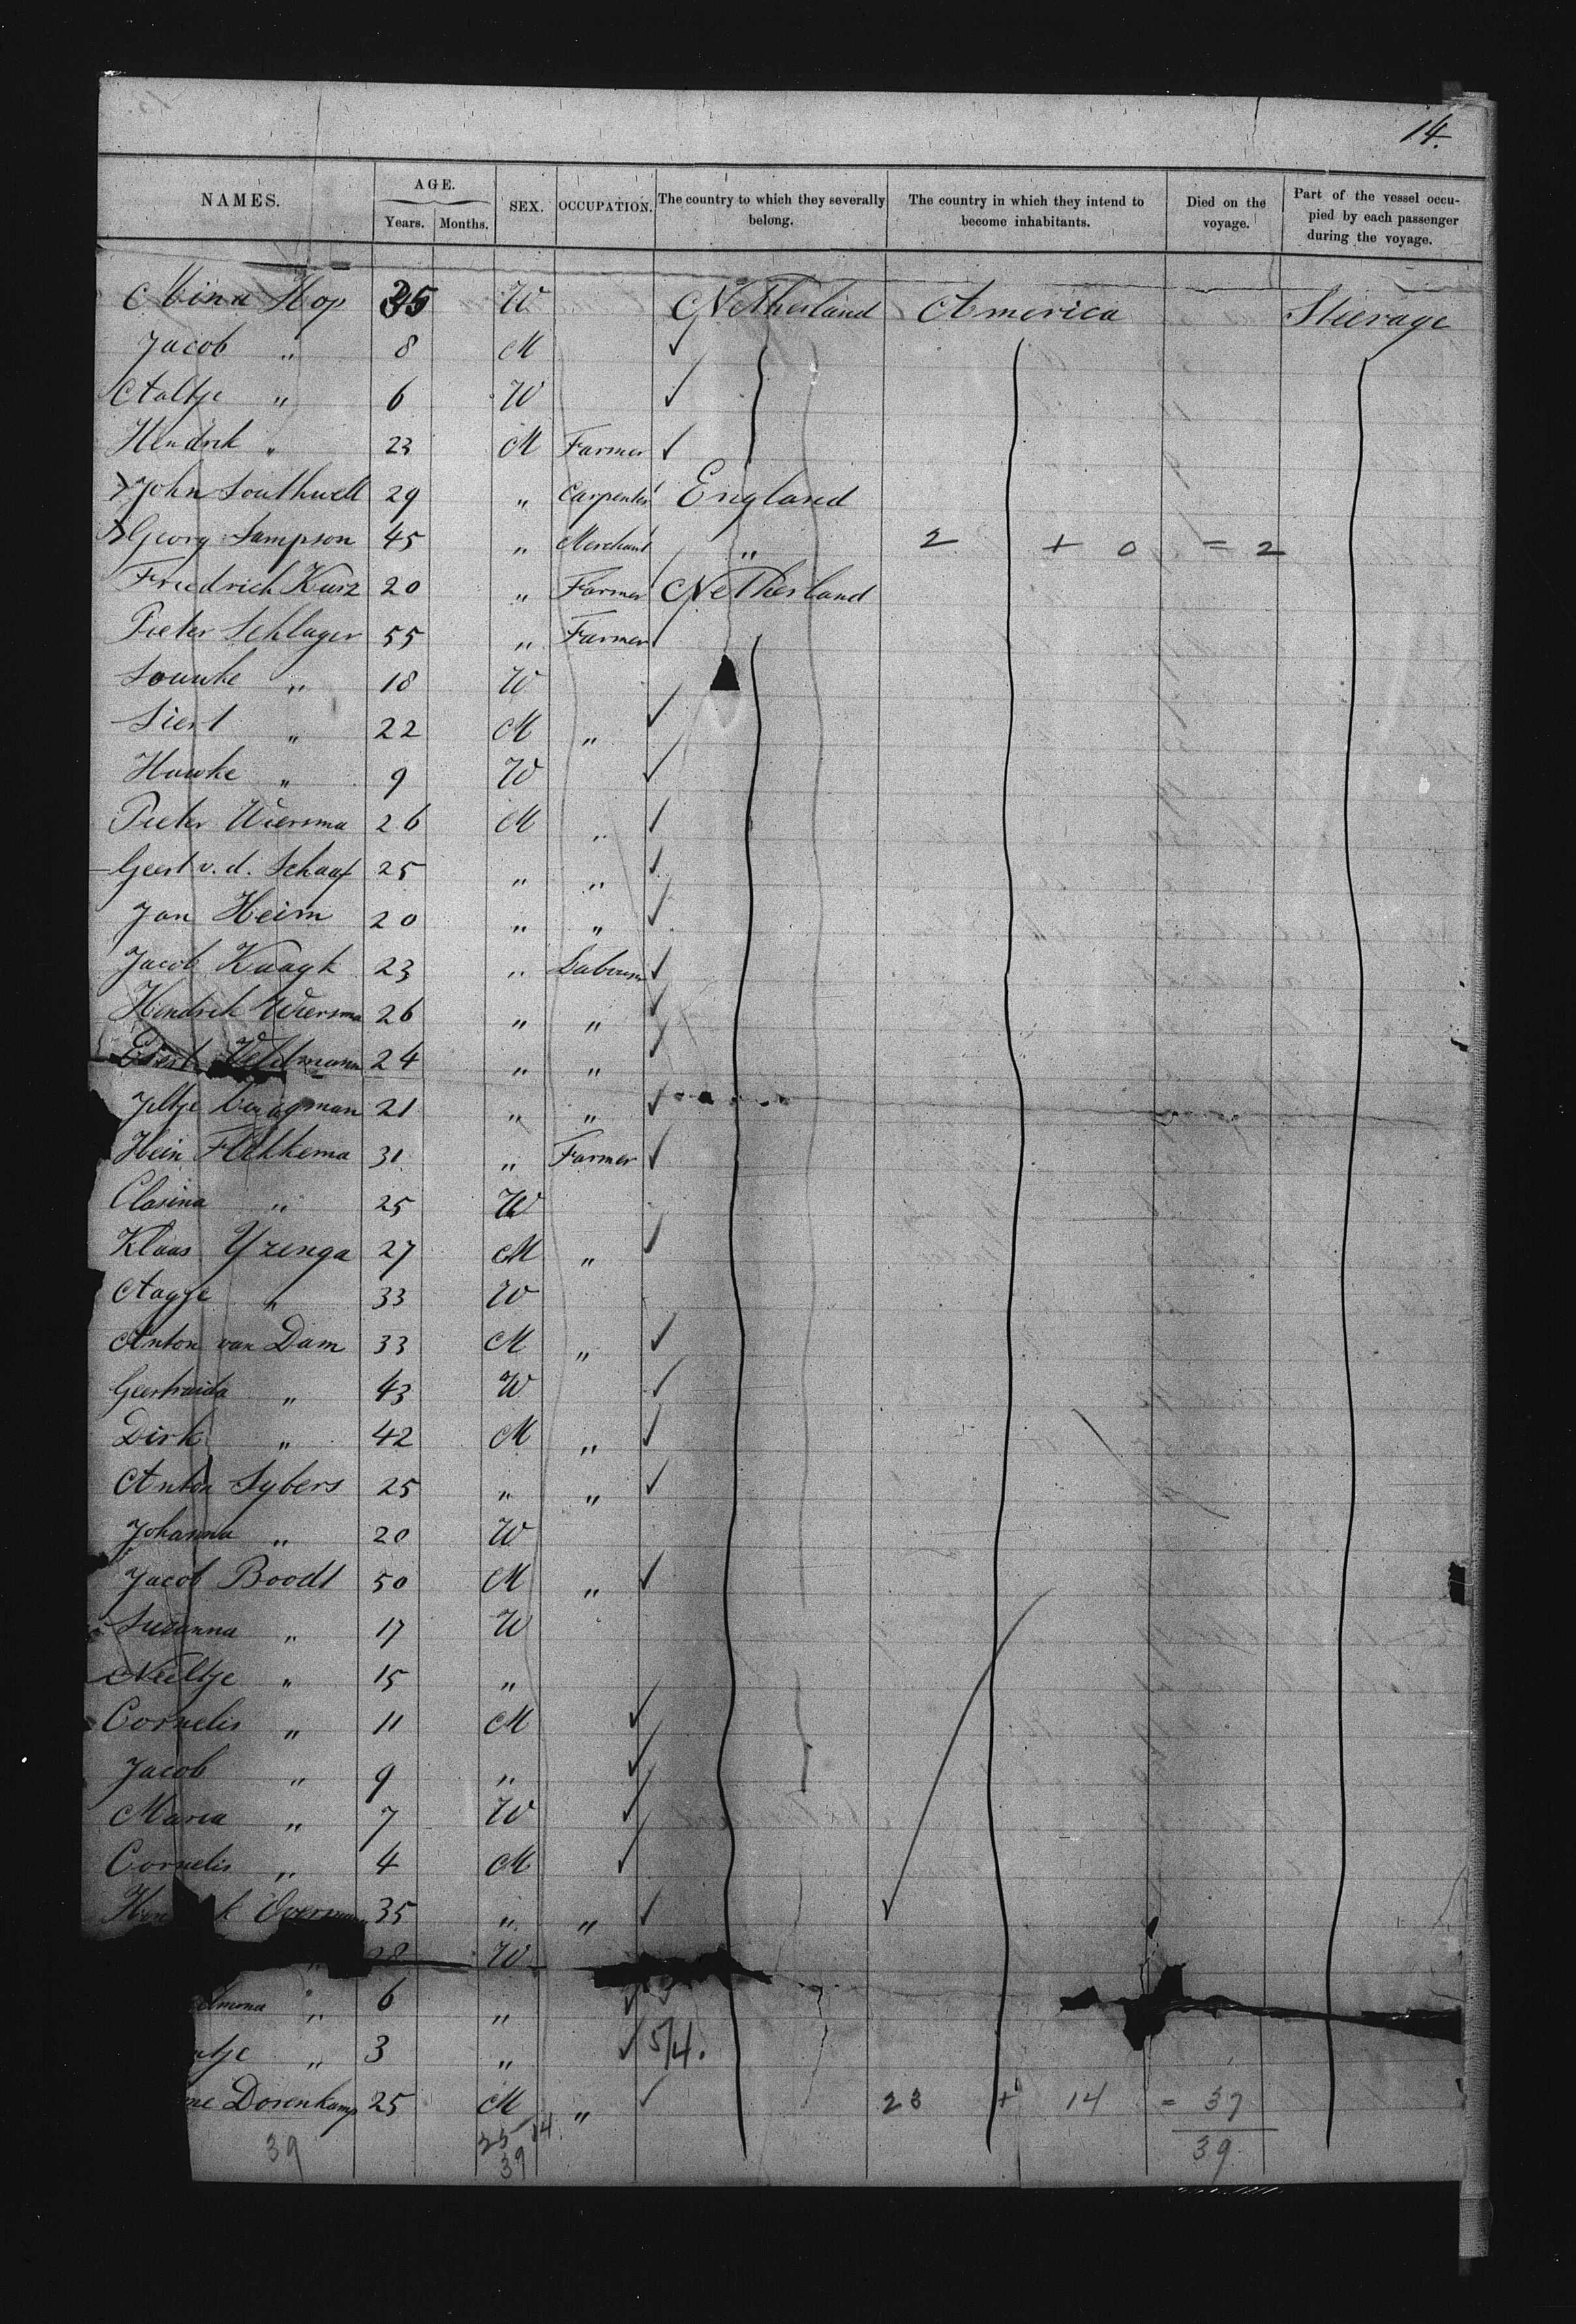 14.
NAMES. AGE. Years. Months. SEX. OCCUPATION. The country to which they severally belong. The country in which they intend to become inhabitants. Died on the voyage. Part of the vessel occupied by each passenger during the voyage.
Mina Hop 35 W Netherland America Steerage
Jacob " 8 M
Aaltje " 6 W
Hendrik " 23 M Farmer
John Southwell 29 " Carpenter England
Georg Sampson 45 " Merchant " 2 + 0 = 2
Friedrich Kurz 20 " Farmer Netherland
Pieter Schlager 55 " Farmer
Souwke " 18 W
Siert " 22 M "
Hawke " 9 W
Pieter Wiersma 26 M "
Geert v. d. Schaaf 25 " "
Jan Heim 20 " "
Jacob Kaagk 23 " Labourer
Hendrik Wiersma 26 " "
Evert Veldmann 24 " "
Jeltje 21 " "
Hein Flekkema 31 " Farmer
Clasina " 25 W
Klaas Yzenga 27 M "
Aagje " 33 W
Anton van Dam 33 M "
Geertruida " 43 W
Dirk " 42 M "
Anton Sybers 25 " "
Johanna " 20 W
Jacob Boodt 50 M "
Suzanna " 17 W
Neeltje " 15 "
Cornelis " 11 M
Jacob " 9 "
Maria " 7 W
Cornelis " 4 M
Overmann 35 " "
" 28 W
" 6 "
" 3 " 5/4.
Dorenkamp 25 M " 23 + 14 = 37
39 25 14 39 39